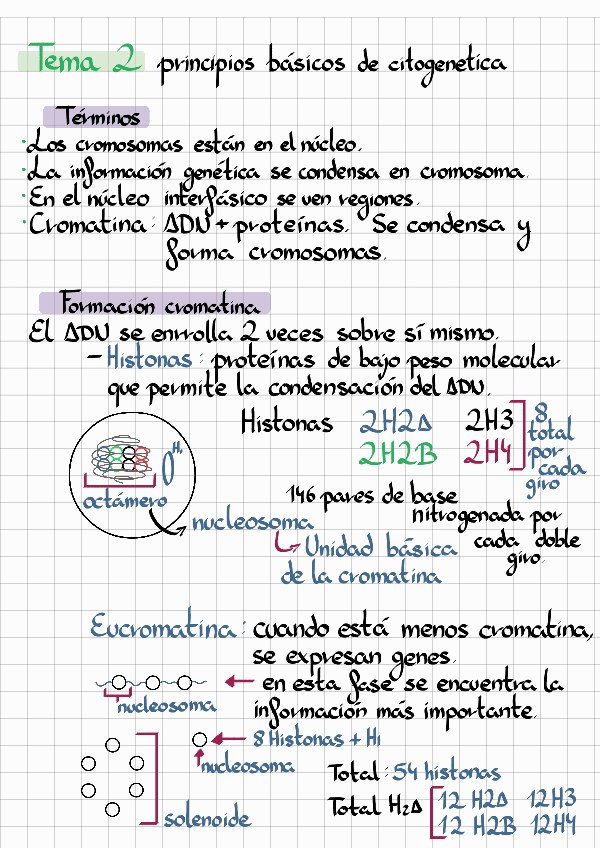 Tema 2 principios básicos de citogenetica
Términos
· Los cromosomas están en el núcleo.
· La información genética se condensa en cromosoma.
· En el núcleo interfásico se ven regiones.
· Cromatina: ADN + proteínas. Se condensa y
forma cromosomas.
Formación cromatina
El ADN se enrrolla 2 veces sobre sí mismo.
- Histonas: proteínas de bajo peso molecular
que permite la condensación del ADN.
Histonas 2H2A 2H3
2H2B 2H4
8 total por cada giro
H1
octámero
146 pares de base
nitrogenada por
cada doble
giro.
nucleosoma
Unidad básica
de la cromatina
Eucromatina: cuando está menos cromatina,
se expresan genes.
en esta fase se encuentra la
información más importante.
nucleosoma
8 Histonas + H1
nucleosoma
solenoide
Total: 54 histonas
Total H2A 12 H2A 12H3
12 H2B 12H4